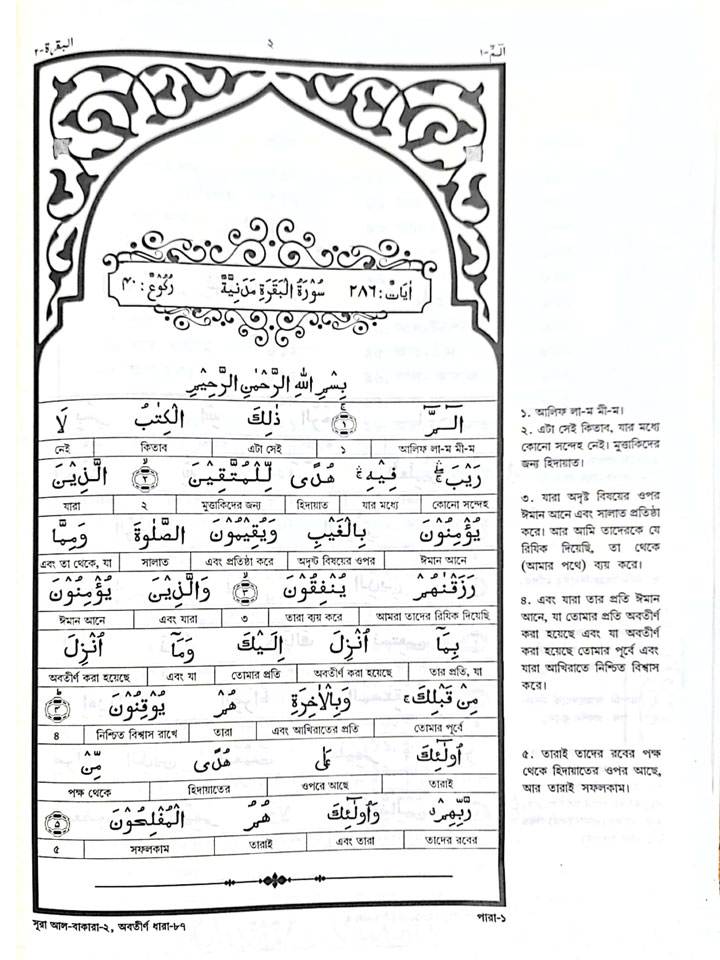 البقرة-٢ ٢ الٓمّٓ-١
اٰيَاتُ: ٢٨٦ سُوْرَةُ الْبَقَرَةِ مَدَنِيَّةٌ رُكُوْعُ: ٤٠
بِسْمِ اللهِ الرَّحْمٰنِ الرَّحِيْمِ
الٓمّٓ ۚ ﴿١﴾ ذٰلِكَ الْكِتٰبُ لَا
আলিফ লা-ম মী-ম ১ এটা সেই কিতাব নেই
رَيْبَ ۛۖ فِيْهِ ۛۚ هُدًى لِّلْمُتَّقِيْنَ ۙ﴿٢﴾ الَّذِيْنَ
কোনো সন্দেহ যার মধ্যে হিদায়াত মুত্তাকিদের জন্য ২ যারা
يُؤْمِنُوْنَ بِالْغَيْبِ وَيُقِيْمُوْنَ الصَّلٰوةَ وَمِمَّا
ঈমান আনে অদৃষ্ট বিষয়ের ওপর এবং প্রতিষ্ঠা করে সালাত এবং তা থেকে, যা
رَزَقْنٰهُمْ يُنْفِقُوْنَ ۙ﴿٣﴾ وَالَّذِيْنَ يُؤْمِنُوْنَ
আমরা তাদের রিযিক দিয়েছি তারা ব্যয় করে ৩ এবং যারা ঈমান আনে
بِمَآ اُنْزِلَ اِلَيْكَ وَمَآ اُنْزِلَ
তার প্রতি, যা অবতীর্ণ করা হয়েছে তোমার প্রতি এবং যা অবতীর্ণ করা হয়েছে
مِنْ قَبْلِكَ ۚ وَبِالْاٰخِرَةِ هُمْ يُوْقِنُوْنَ ؕ﴿٤﴾
তোমার পূর্বে এবং আখিরাতের প্রতি তারা নিশ্চিত বিশ্বাস রাখে ৪
اُولٰٓئِكَ عَلٰى هُدًى مِّنْ
তারাই ওপরে আছে হিদায়াতের পক্ষ থেকে
رَّبِّهِمْ ۗ وَاُولٰٓئِكَ هُمُ الْمُفْلِحُوْنَ ﴿٥﴾
তাদের রবের এবং তারা তারাই সফলকাম ৫
১. আলিফ লা-ম মী-ম।
২. এটা সেই কিতাব, যার মধ্যে
কোনো সন্দেহ নেই। মুত্তাকিদের
জন্য হিদায়াত।
৩. যারা অদৃষ্ট বিষয়ের ওপর
ঈমান আনে এবং সালাত প্রতিষ্ঠা
করে। আর আমি তাদেরকে যে
রিযিক দিয়েছি, তা থেকে
(আমার পথে) ব্যয় করে।
৪. এবং যারা তার প্রতি ঈমান
আনে, যা তোমার প্রতি অবতীর্ণ
করা হয়েছে এবং যা অবতীর্ণ
করা হয়েছে তোমার পূর্বে এবং
যারা আখিরাতে নিশ্চিত বিশ্বাস
করে।
৫. তারাই তাদের রবের পক্ষ
থেকে হিদায়াতের ওপর আছে,
আর তারাই সফলকাম।
সূরা আল-বাকারা-২, অবতীর্ণ ধারা-৮৭ পারা-১